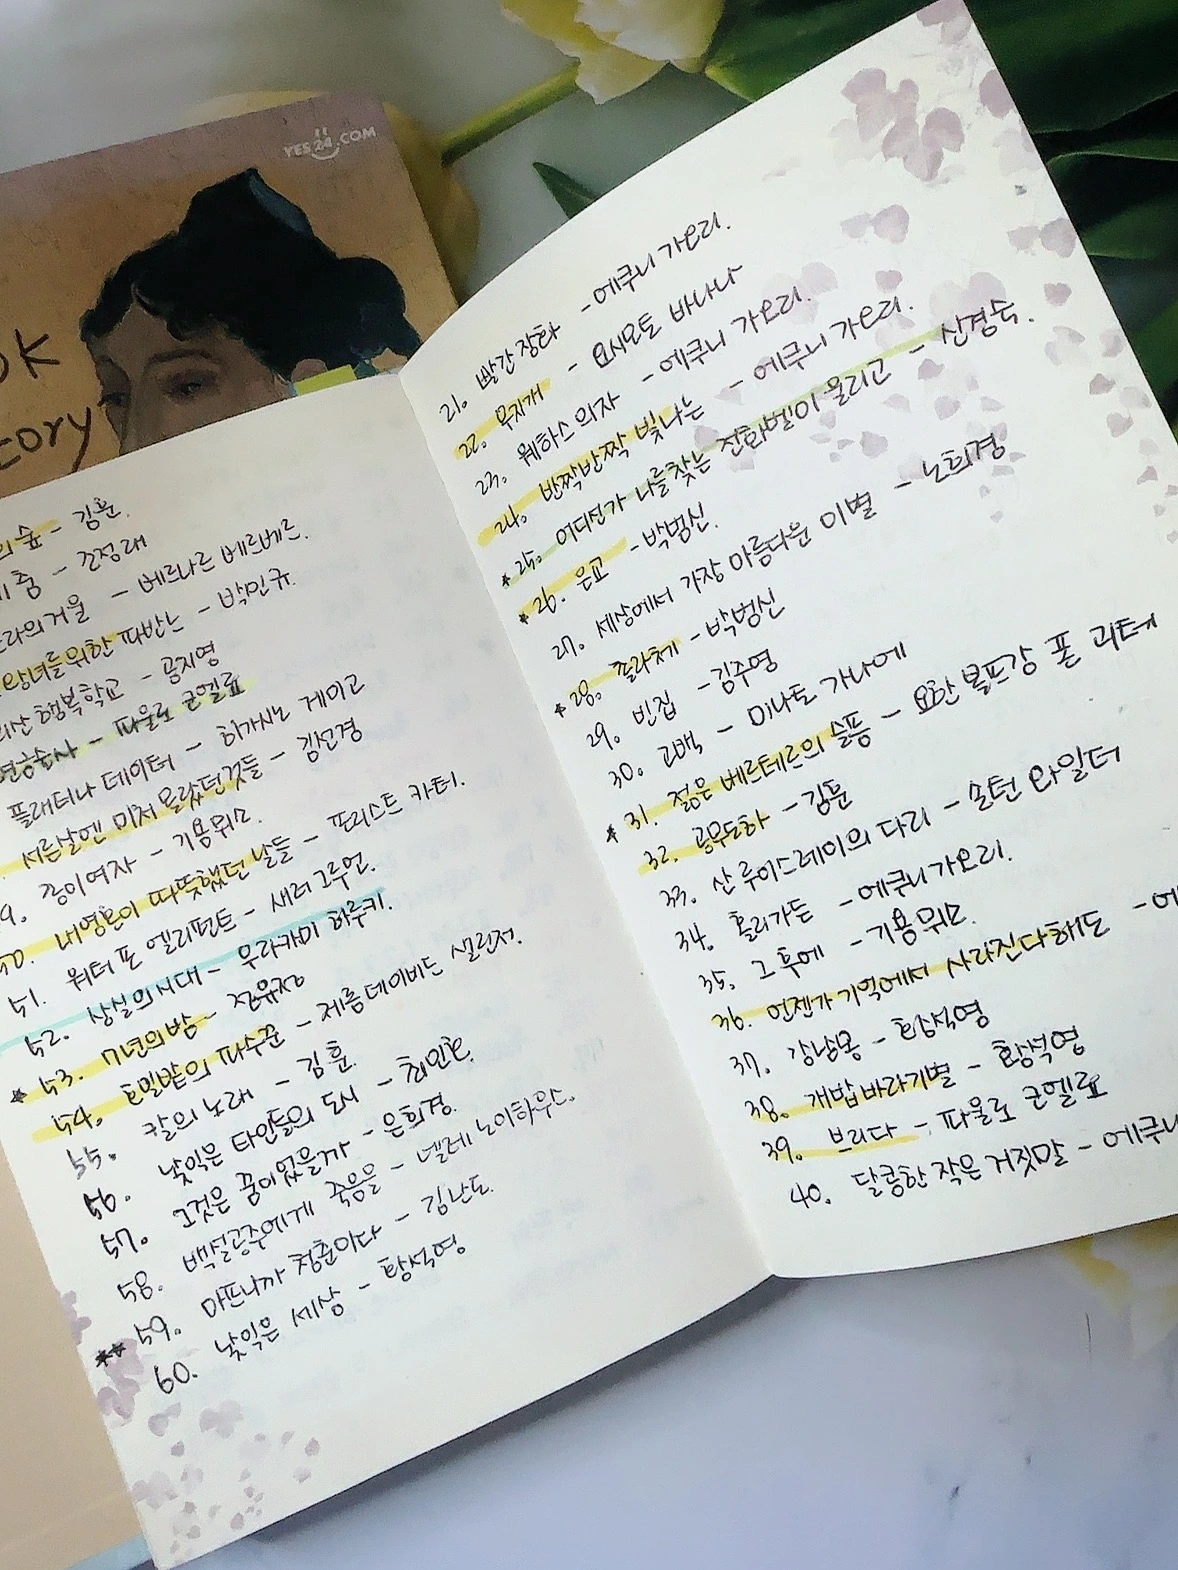 YES24.COM
ok
tory
의 숲 - 김훈.
충 - 조정래
의 거울 - 베르나르 베르베르.
왕녀를 위한 파반느 - 박민규.
리산 행복학교 - 공지영
연금술사 - 파울로 코엘료
플래티나 데이터 - 히가시노 게이고
서른살엔 미처 몰랐던 것들 - 김선경
9. 종이여자 - 기욤뮈소.
50. 내 영혼이 따뜻했던 날들 - 포리스트 카터.
51. 워터 포 엘리펀트 - 새러 그루언.
52. 상실의 시대 - 무라카미 하루키.
* 53. 7년의 밤 - 정유정
54. 호밀밭의 파수꾼 - 제롬 데이비드 샐린저.
55. 칼의 노래 - 김훈.
56. 낯익은 타인들의 도시 - 최인호.
57. 그것은 꿈이었을까 - 은희경.
58. 백설공주에게 죽음을 - 넬레 노이하우스.
** 59. 아프니까 청춘이다 - 김난도.
60. 낯익은 세상 - 황석영
21. 빨간 장화 - 에쿠니 가오리.
22. 무지개 - 요시모토 바나나
23. 웨하스 의자 - 에쿠니 가오리.
24. 반짝반짝 빛나는 - 에쿠니 가오리.
* 25. 어디선가 나를 찾는 전화벨이 울리고 - 신경숙.
* 26. 은교 - 박범신.
27. 세상에서 가장 아름다운 이별 - 노희경
* 28. 촐라체 - 박범신
29. 빈집 - 김주영
30. 고백 - 미나토 가나에
* 31. 젊은 베르테르의 슬픔 - 요한 볼프강 폰 괴테
32. 공무도하 - 김훈
33. 산 루이스 레이의 다리 - 손턴 와일더
34. 홀리가든 - 에쿠니 가오리.
35. 그 후에 - 기욤뮈소.
36. 언젠가 기억에서 사라진다해도 - 에
37. 강남몽 - 황석영
38. 개밥바라기별 - 황석영
39. 브리다 - 파울로 코엘료
40. 달콤한 작은 거짓말 - 에쿠니